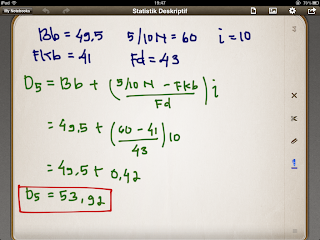 iPad
19.47
75%
My Notebooks
Statistik Deskriptif
Bb = 49,5 5/10 N = 60 i = 10
Fkb = 41 Fd = 43
D5 = Bb + (5/10 N - Fkb / Fd) i
= 49,5 + (60 - 41 / 43) 10
= 49,5 + 0,42
D5 = 53,92